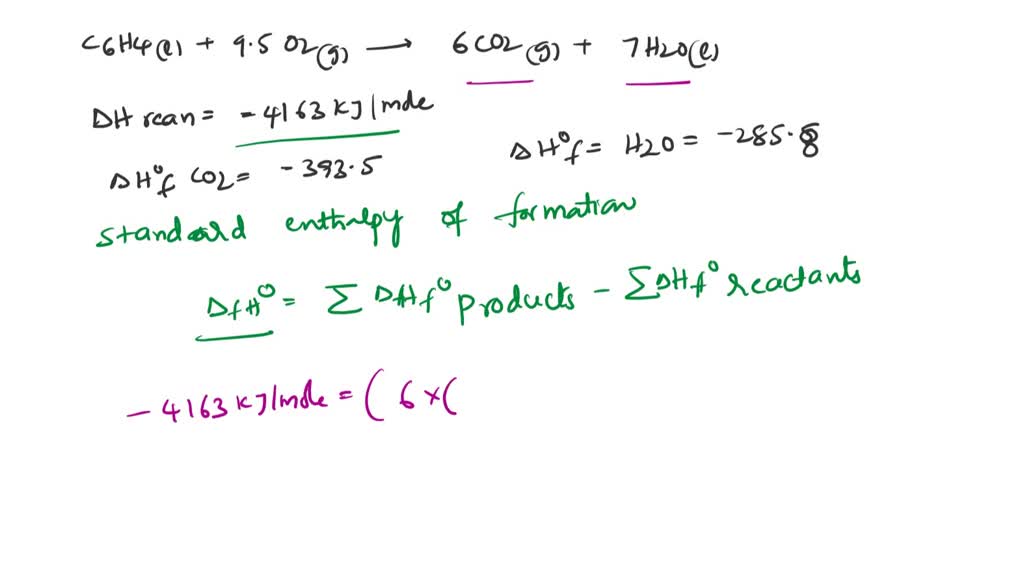 C6H4(l) + 9.5 O2(g) → 6CO2(g) + 7H2O(l)
ΔH rean = -4163 kJ/mole
ΔH°f CO2 = -393.5 ΔH°f = H2O = -285.8
standard enthalpy of formation
ΔfH° = Σ ΔHf° products - ΣΔHf° reactants
- 4163 kJ/mole = ( 6 x (